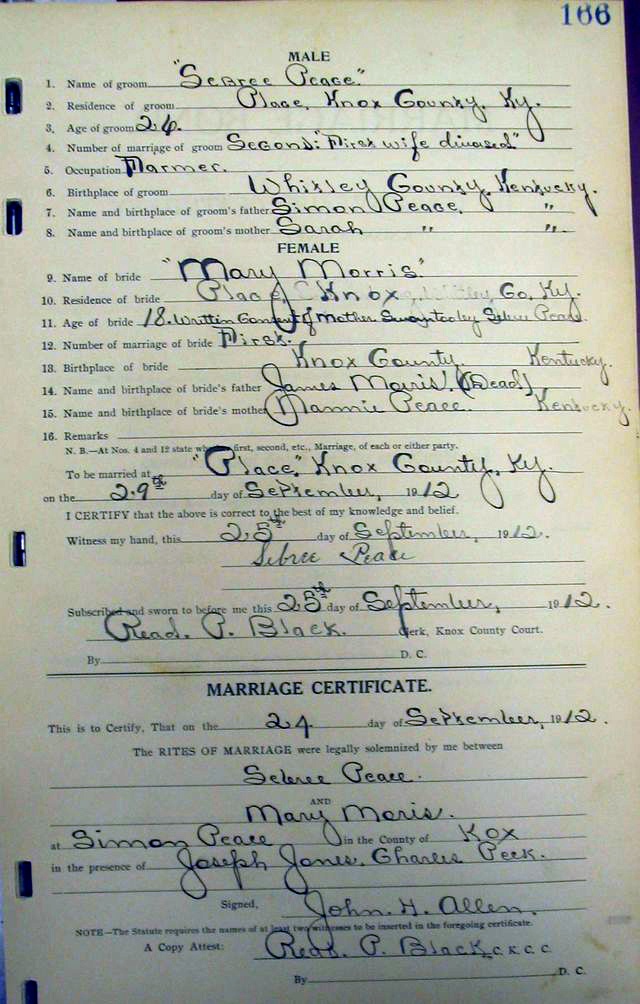 166
MALE
1. Name of groom "Sebree Peace."
2. Residence of groom Place, Knox County, Ky.
3. Age of groom 24.
4. Number of marriage of groom Second: "First wife divorsed"
5. Occupation Farmer.
6. Birthplace of groom Whitley County, Kentucky.
7. Name and birthplace of groom's father Simon Peace. "
8. Name and birthplace of groom's mother Sarah " ".
FEMALE
9. Name of bride "Mary Morris."
10. Residence of bride Place, Knox Co. Ky.
11. Age of bride 18. Written Consent of Mother Sebree Peace.
12. Number of marriage of bride First.
13. Birthplace of bride Knox County, Kentucky.
14. Name and birthplace of bride's father James Morris. (Dead)
15. Name and birthplace of bride's mother Nannie Peace. Kentucky.
16. Remarks
N. B.—At Nos. 4 and 12 state whether first, second, etc., Marriage, of each or either party.
To be married at "Place," Knox County, Ky.
on the 29th day of September, 1912
I CERTIFY that the above is correct to the best of my knowledge and belief.
Witness my hand, this 25th day of September, 1912.
Sebree Peace
Subscribed and sworn to before me this 25th day of September, 1912.
Read. P. Black. Clerk, Knox County Court.
By D. C.
MARRIAGE CERTIFICATE.
This is to Certify, That on the 29 day of September, 1912.
The RITES OF MARRIAGE were legally solemnized by me between
Sebree Peace.
AND
Mary Moris.
at Simon Peace in the County of Kox
in the presence of Joseph Jones, Charles Peck.
Signed, John. H. Allen.
NOTE—The Statute requires the names of at least two witnesses to be inserted in the foregoing certificate.
A Copy Attest: Read. P. Black C. K. C. C.
By D. C.